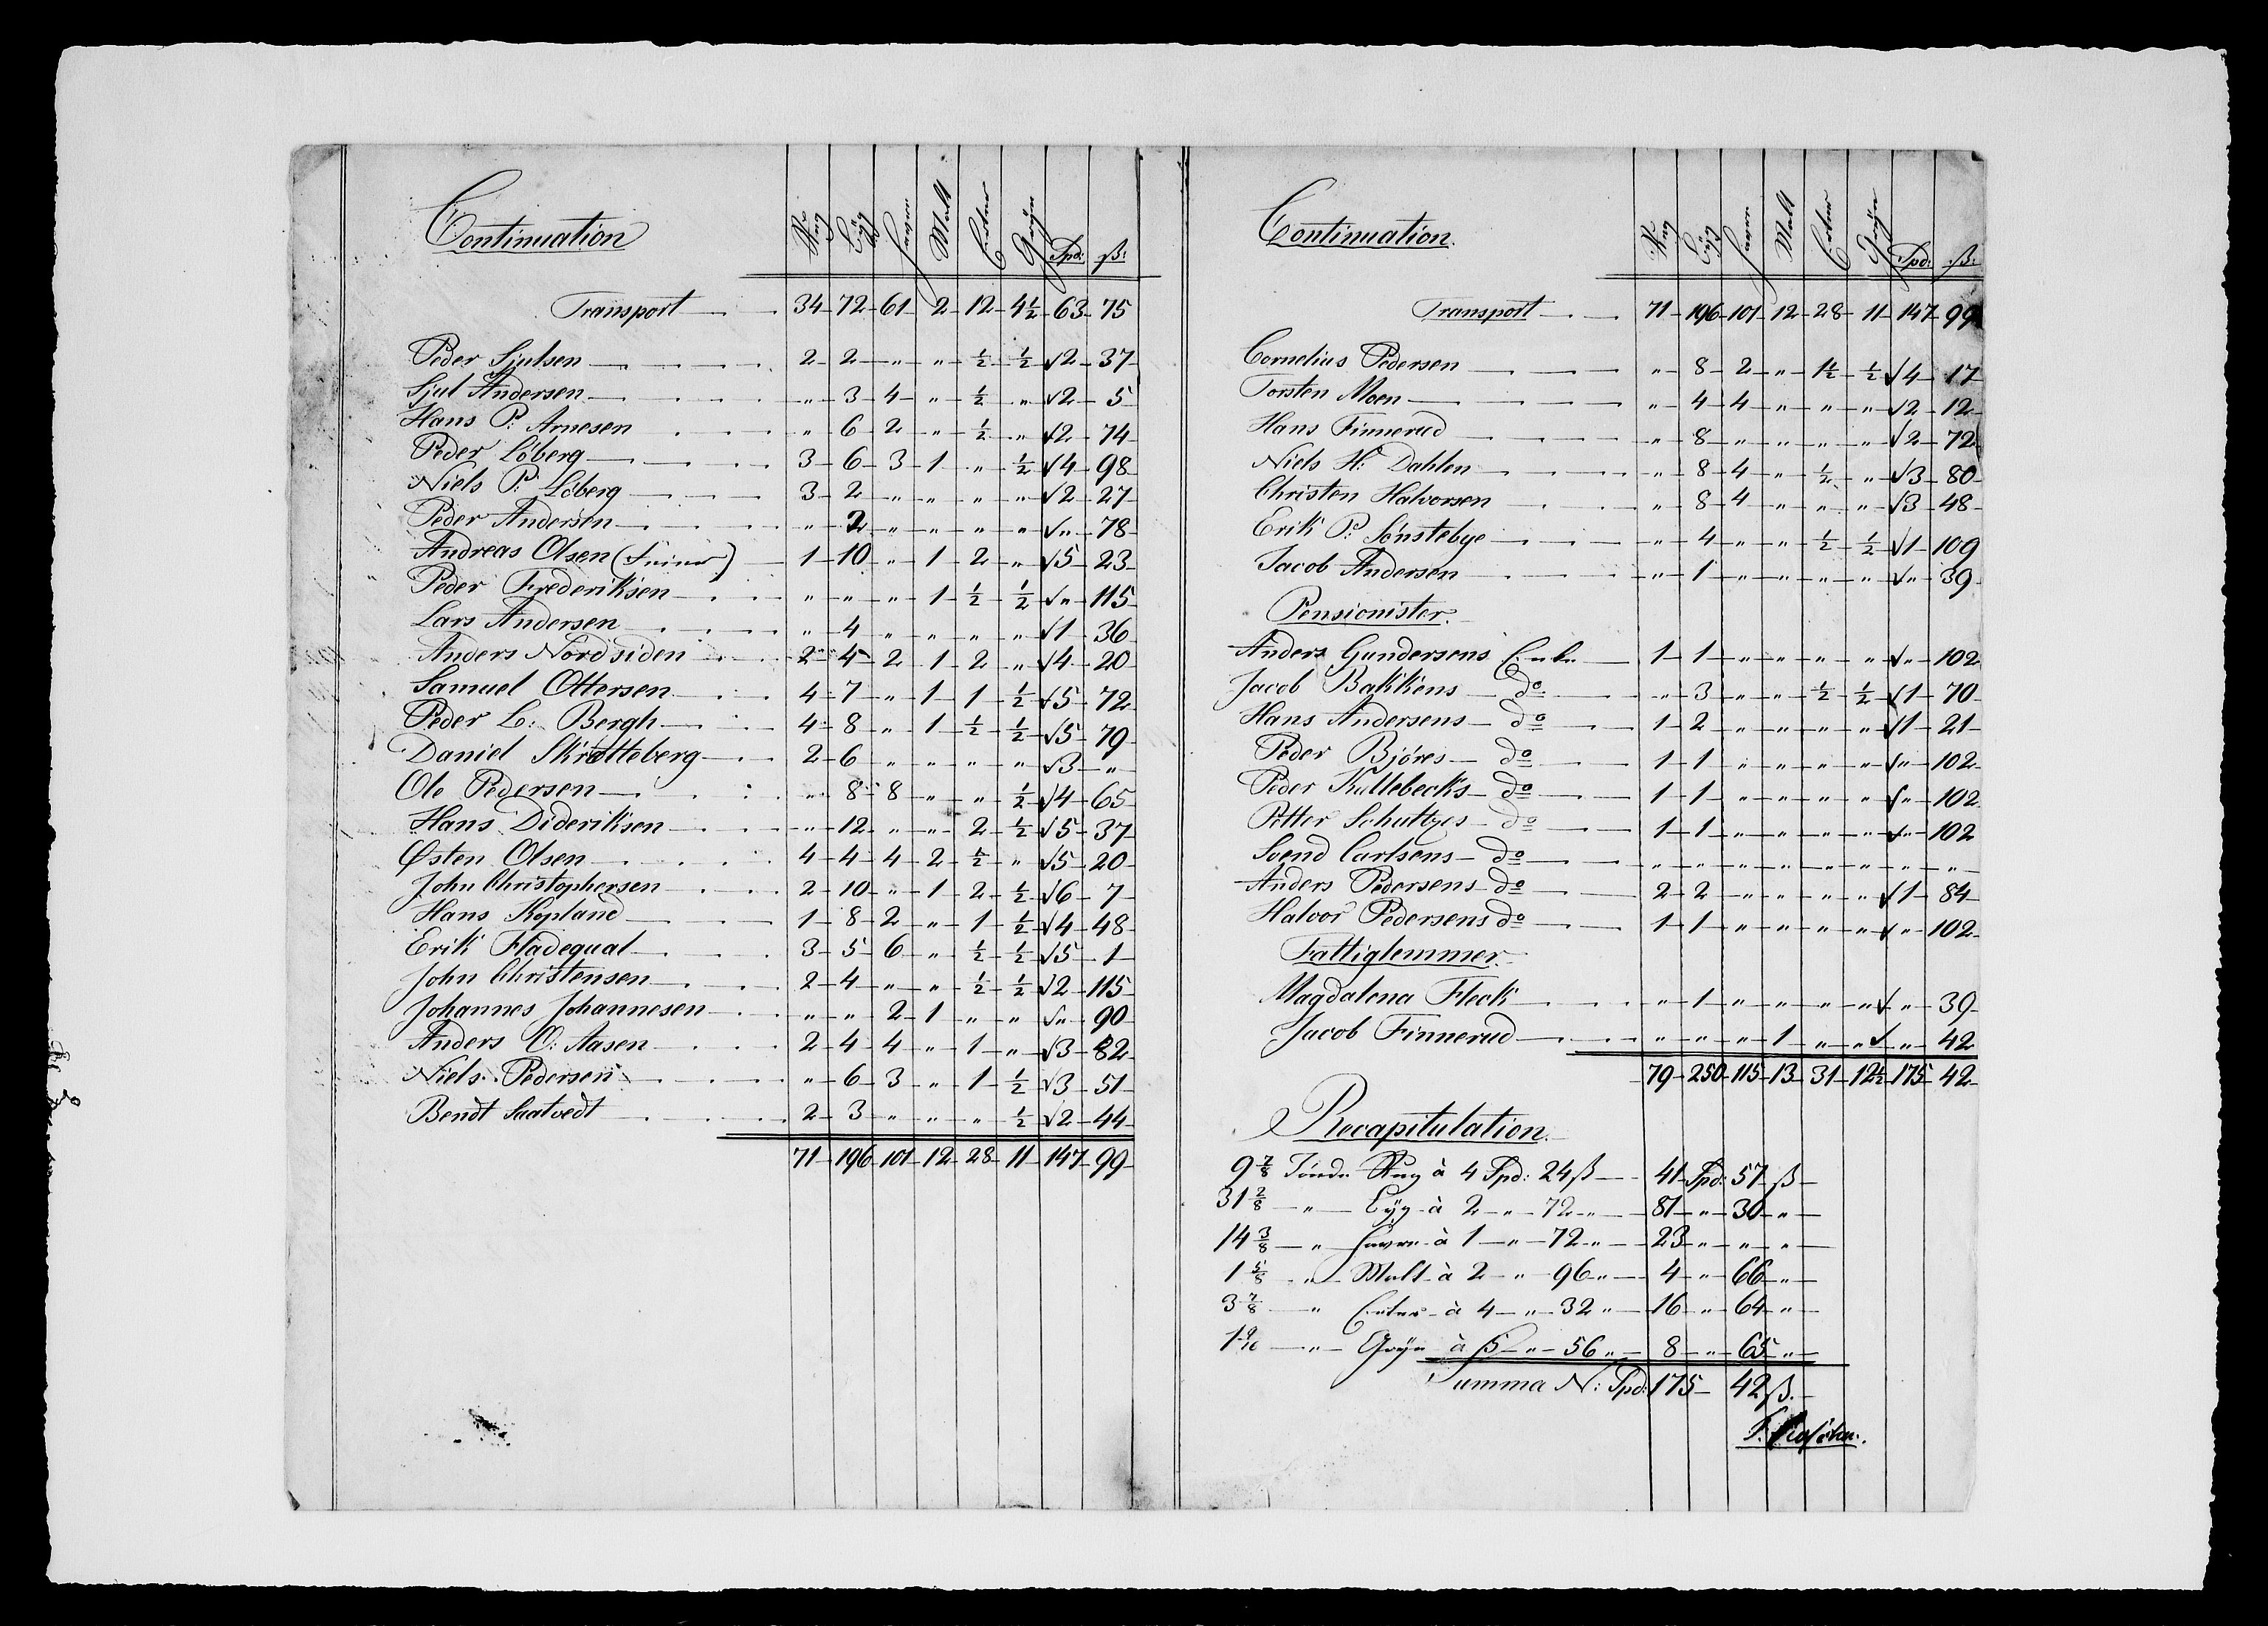 Continuation
Rug Byg Havre Malt Erter Gryn Spd: ß:
Transport 34 72 61 2 12 4½ 63 75
Peder Sjulsen 2 2 " " ½ ½ √2 37
Sjul Andersen " 3 4 " ½ " √2 5
Hans P: Arnesen " 6 2 " ½ " √2 74
Peder Löberg 3 6 3 1 " ½ √4 98
Niels P: Löberg 3 2 " " " " √2 27
Peder Andersen " 2 " " " " √" 78
Andreas Olsen 1 10 " 1 2 " √5 23
Peder Frederiksen " " " 1 ½ ½ √" 115
Lars Andersen " 4 " " " " √1 36
Anders Nordsiden 2 4 2 1 2 " √4 20
Samuel Ottersen 4 7 " 1 1 ½ √5 72
Peder L: Bergh 4 8 " 1 ½ ½ √5 79
Daniel Skrøtteberg 2 6 " " " " √3 "
Ole Pedersen " 8 8 " " ½ √4 65
Hans Dideriksen " 12 " " 2 ½ √5 37
Østen Olsen 4 4 4 2 ½ " √5 20
John Christophersen 2 10 " 1 2 ½ √6 7
Hans Kopland 1 8 2 " 1 ½ √4 48
Erik Fladequal 3 5 6 " ½ ½ √5 1
John Christensen 2 4 " " ½ ½ √2 115
Johannes Johannesen " " 2 1 " " √" 90
Anders O: Aasen 2 4 4 " 1 " √3 82
Niels Pedersen " 6 3 " 1 ½ √3 51
Bendt Saatvedt 2 3 " " " ½ √2 44
71 196 101 12 28 11 147 99
Continuation.
Rug Byg Havre Malt Erter Gryn Spd: ß:
Transport 71 196 101 12 28 11 147 99
Cornelius Pedersen " 8 2 " 1½ ½ √4 17
Torsten Moen " 4 4 " " " √2 12
Hans Finnerud " 8 " " " " √2 72
Niels H: Dahlen " 8 4 " ½ " √3 80
Christen Halvorsen " 8 4 " " " √3 48
Erik P: Sönstebye " 4 " " ½ ½ √1 109
Jacob Andersen " 1 " " " " √" 39
Pensionister.
Anders Gundersens Enke 1 1 " " " " √" 102
Jacob Bakkens do " 3 " " ½ ½ √1 70
Hans Andersens do 1 2 " " " " √1 21
Peder Björes do 1 1 " " " " √" 102
Peder Kullebecks do 1 1 " " " " √" 102
Petter Schultzes do 1 1 " " " " √" 102
Svend Carlsens do " " " " " " " "
Anders Pedersens do 2 2 " " " " √1 84
Halvor Pedersens do 1 1 " " " " √" 102
Fattiglemmer.
Magdalena Fleck " 1 " " " " √" 39
Jacob Finnerud " " " 1 " " √" 42
79 250 115 13 31 12½ 175 42
Recapitulation.
9⅞ Tönde Rug à 4 Spd: 24 ß 41 Spd: 57 ß
31 2/8 " Byg à 2 " 72 " 81 " 30 "
14⅜ " Havre à 1 " 72 " 23 " " "
1⅝ " Malt à 2 " 96 " 4 " 66 "
3⅞ " Erter à 4 " 32 " 16 " 64 "
1 9/16 " Gryn à 5 " 56 " 8 " 65 "
Summa N: Spd: 175 42 ß.